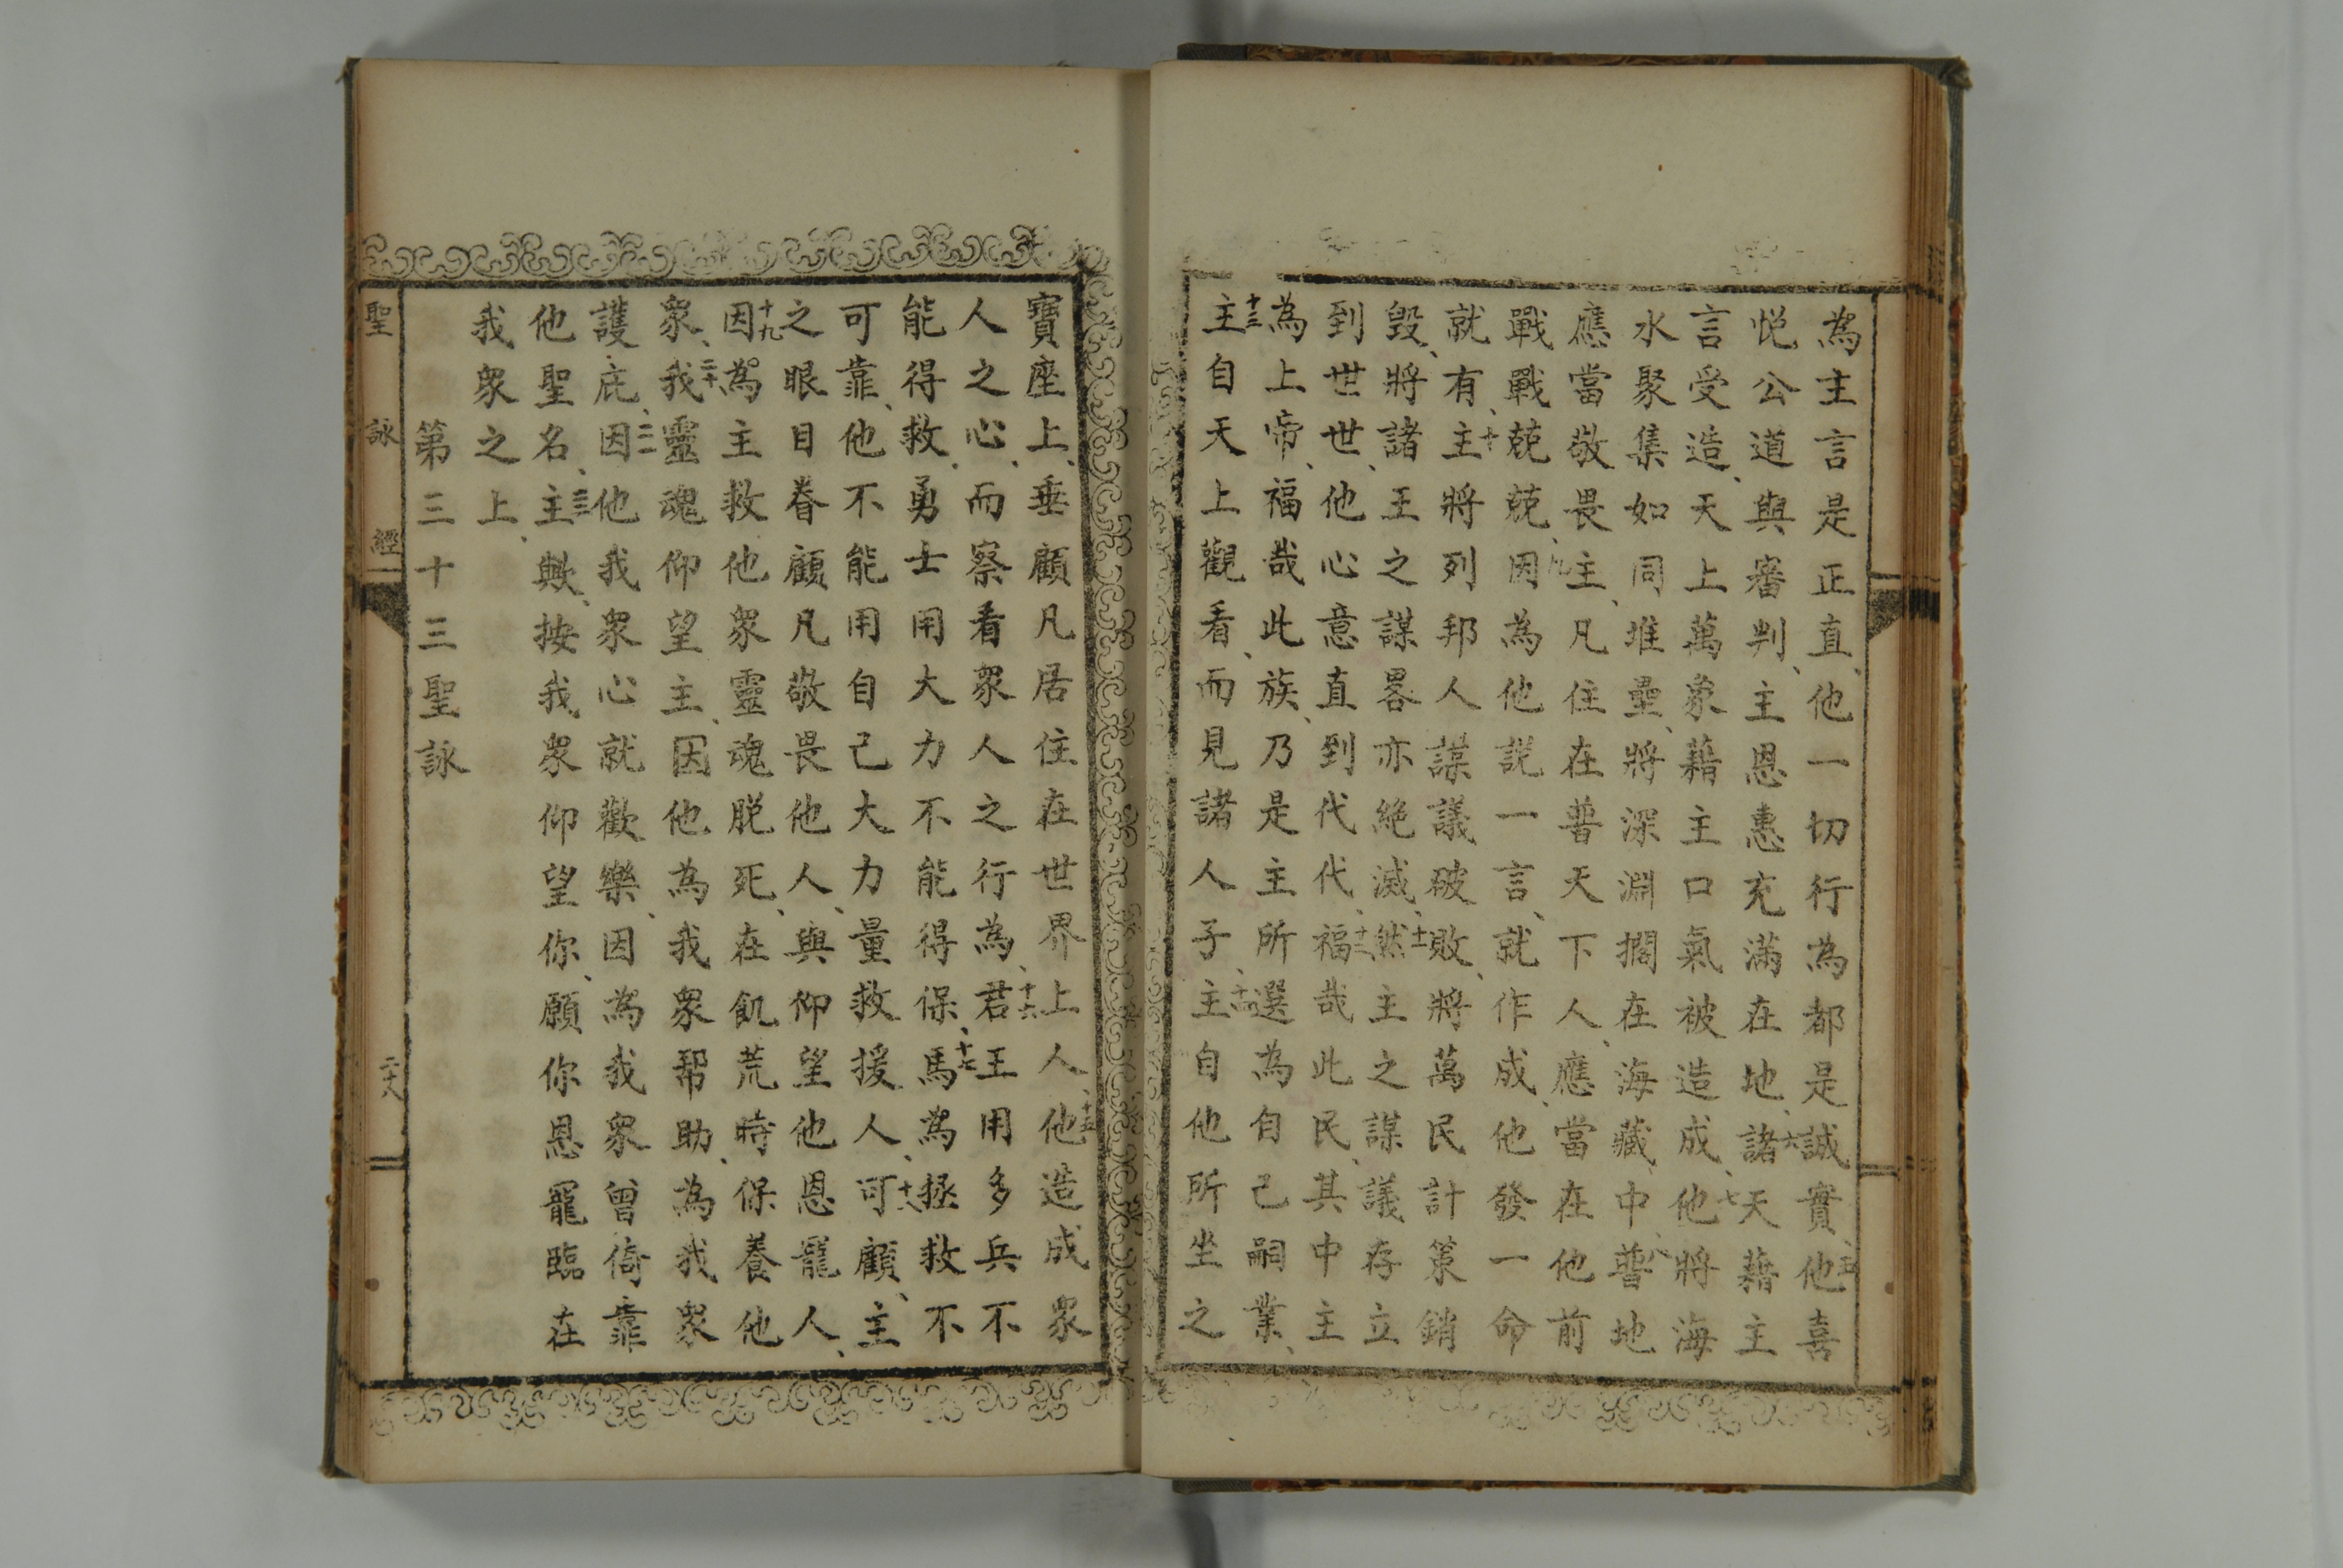 為主言是正直、他一切行為都是誠實、五他喜
悅公道與審判、主恩惠充滿在地、六諸天藉主
言受造、天上萬象藉主口氣被造成、七他將海
水聚集如同堆壘、將深淵擱在海藏中、八普地
應當敬畏主、凡住在普天下人、應當在他前
戰戰兢兢、九因為他說一言、就作成、他發一命
就有、十主將列邦人謀議破敗、將萬民計策銷
毀、將諸王之謀畧亦絕滅、十一然主之謀議存立
到世世、他心意直到代代、十二福哉此民、其中主
為上帝、福哉此族、乃是主所選為自己嗣業、
十三主自天上觀看、而見諸人子、十四主自他所坐之
寶座上、垂顧凡居住在世界上人、十五他造成眾
人之心、而察看眾人之行為、十六君王用多兵不
能得救、勇士用大力不能得保、十七馬為拯救不
可靠、他不能用自己大力量救援人、十八可顧、主
之眼目眷顧凡敬畏他人、與仰望他恩寵人、
十九因為主救他眾靈魂脫死、在飢荒時保養他
眾、二十我靈魂仰望主、因他為我眾帮助、為我眾
護庇、二一因他我眾心就歡樂、因為我眾曾倚靠
他聖名、二二主歟、按我眾仰望你、願你恩寵臨在
我眾之上、
第三十三聖詠
聖詠經
二十八